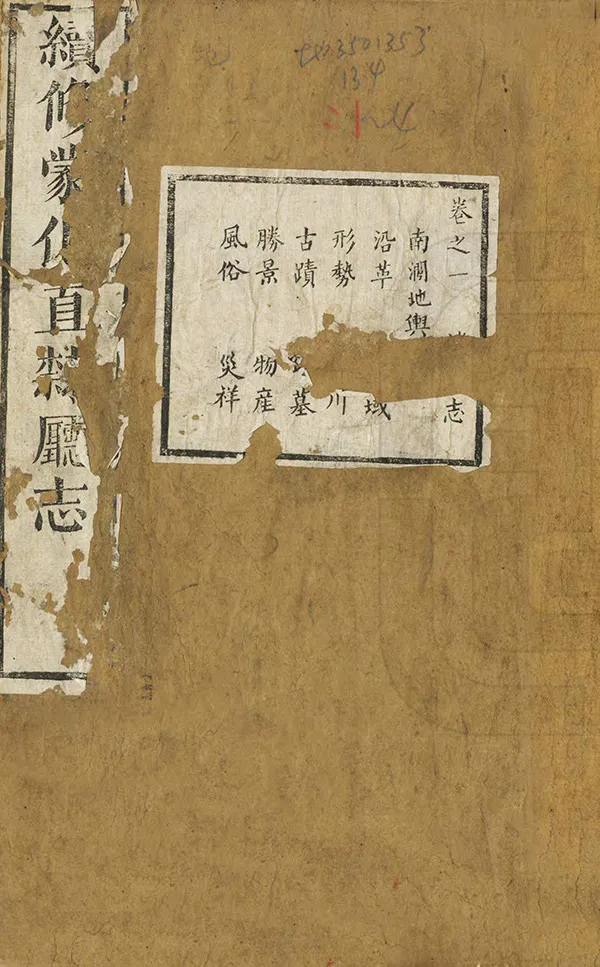 續修蒙化直隸廳志
134
卷之一 志
南澗地輿
沿革 域
形勢 川
古蹟 墓
勝景 物産
風俗 災祥